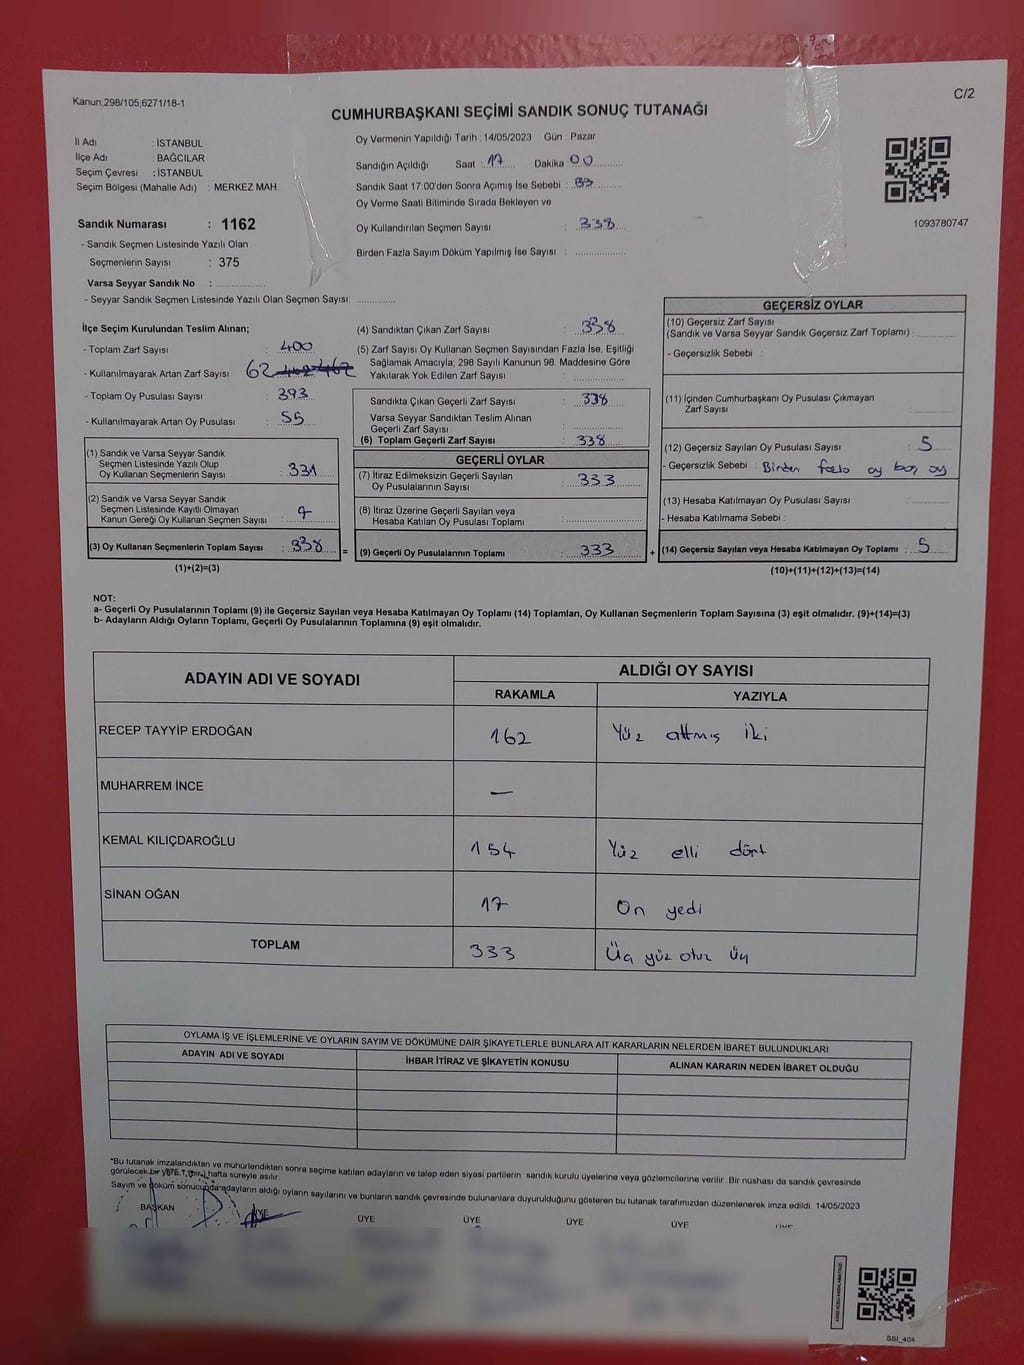 Kanun;298/105;6271/18-1
C/2
CUMHURBAŞKANI SEÇİMİ SANDIK SONUÇ TUTANAĞI
İl Adı : İSTANBUL
İlçe Adı : BAĞCILAR
Seçim Çevresi : İSTANBUL
Seçim Bölgesi (Mahalle Adı) : MERKEZ MAH.
Sandık Numarası : 1162
- Sandık Seçmen Listesinde Yazılı Olan
Seçmenlerin Sayısı : 375
Varsa Seyyar Sandık No :
- Seyyar Sandık Seçmen Listesinde Yazılı Olan Seçmen Sayısı:
Oy Vermenin Yapıldığı Tarih : 14/05/2023 Gün : Pazar
Sandığın Açıldığı Saat : 17 Dakika : 00
Sandık Saat 17:00'den Sonra Açımış İse Sebebi :
Oy Verme Saati Bitiminde Sırada Bekleyen ve
Oy Kullandırılan Seçmen Sayısı : 338
Birden Fazla Sayım Döküm Yapılmış İse Sayısı :
1093780747
İlçe Seçim Kurulundan Teslim Alınan;
- Toplam Zarf Sayısı : 400
- Kullanılmayarak Artan Zarf Sayısı 62
- Toplam Oy Pusulası Sayısı : 393
- Kullanılmayarak Artan Oy Pusulası : 55
(1) Sandık ve Varsa Seyyar Sandık
Seçmen Listesinde Yazılı Olup
Oy Kullanan Seçmenlerin Sayısı : 331
(2) Sandık ve Varsa Seyyar Sandık
Seçmen Listesinde Kayıtlı Olmayan
Kanun Gereği Oy Kullanan Seçmen Sayısı : 7
(3) Oy Kullanan Seçmenlerin Toplam Sayısı : 338 =
(1)+(2)=(3)
(4) Sandıktan Çıkan Zarf Sayısı : 338
(5) Zarf Sayısı Oy Kullanan Seçmen Sayısından Fazla İse, Eşitliği
Sağlamak Amacıyla; 298 Sayılı Kanunun 98. Maddesine Göre
Yakılarak Yok Edilen Zarf Sayısı :
Sandıkta Çıkan Geçerli Zarf Sayısı : 338
Varsa Seyyar Sandıktan Teslim Alınan
Geçerli Zarf Sayısı :
(6) Toplam Geçerli Zarf Sayısı : 338
GEÇERLİ OYLAR
(7) İtiraz Edilmeksizin Geçerli Sayılan
Oy Pusulalarının Sayısı : 333
(8) İtiraz Üzerine Geçerli Sayılan veya
Hesaba Katılan Oy Pusulası Toplamı :
(9) Geçerli Oy Pusulalarının Toplamı : 333 +
GEÇERSİZ OYLAR
(10) Geçersiz Zarf Sayısı
(Sandık ve Varsa Seyyar Sandık Geçersiz Zarf Toplamı) :
- Geçersizlik Sebebi :
(11) İçinden Cumhurbaşkanı Oy Pusulası Çıkmayan
Zarf Sayısı :
(12) Geçersiz Sayılan Oy Pusulası Sayısı : 5
- Geçersizlik Sebebi : Birden fazla oy boş oy
(13) Hesaba Katılmayan Oy Pusulası Sayısı :
- Hesaba Katılmama Sebebi :
(14) Geçersiz Sayılan veya Hesaba Katılmayan Oy Toplamı : 5
(10)+(11)+(12)+(13)=(14)
NOT:
a- Geçerli Oy Pusulalarının Toplamı (9) ile Geçersiz Sayılan veya Hesaba Katılmayan Oy Toplamı (14) Toplamları, Oy Kullanan Seçmenlerin Toplam Sayısına (3) eşit olmalıdır. (9)+(14)=(3)
b- Adayların Aldığı Oyların Toplamı, Geçerli Oy Pusulalarının Toplamına (9) eşit olmalıdır.
ADAYIN ADI VE SOYADI ALDIĞI OY SAYISI
RAKAMLA YAZIYLA
RECEP TAYYİP ERDOĞAN 162 Yüz altmış iki
MUHARREM İNCE —
KEMAL KILIÇDAROĞLU 154 Yüz elli dört
SİNAN OĞAN 17 On yedi
TOPLAM 333 Üç yüz otuz üç
OYLAMA İŞ VE İŞLEMLERİNE VE OYLARIN SAYIM VE DÖKÜMÜNE DAİR ŞİKAYETLERLE BUNLARA AİT KARARLARIN NELERDEN İBARET BULUNDUKLARI
ADAYIN ADI VE SOYADI İHBAR İTİRAZ VE ŞİKAYETİN KONUSU ALINAN KARARIN NEDEN İBARET OLDUĞU
*Bu tutanak imzalandıktan ve mühürlendikten sonra seçime katılan adayların ve talep eden siyasi partilerin sandık kurulu üyelerine veya gözlemcilerine verilir. Bir nüshası da sandık çevresinde
görülecek bir yere 1 (bir) hafta süreyle asılır.
Sayım ve döküm sonucunda adayların aldığı oyların sayılarını ve bunların sandık çevresinde bulunanlara duyurulduğunu gösteren bu tutanak tarafımızdan düzenlenerek imza edildi. 14/05/2023
BAŞKAN ÜYE ÜYE ÜYE ÜYE ÜYE ÜYE
SSI_404